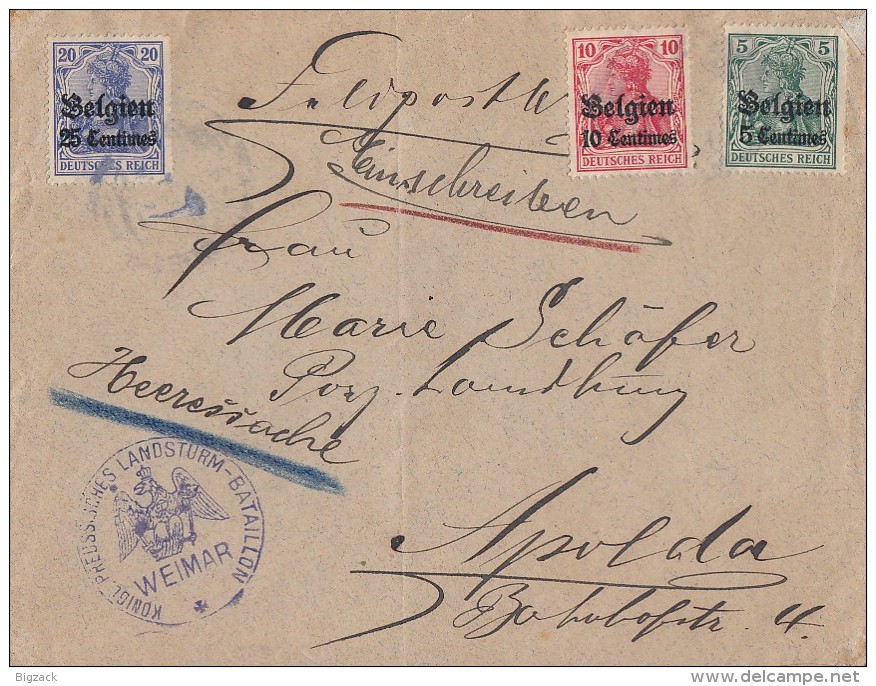 20 20
Belgien
25 Centimes
DEUTSCHES REICH
10 10
Belgien
10 Centimes
DEUTSCHES REICH
5 5
Belgien
5 Centimes
DEUTSCHES REICH
Feldpost
Einschreiben
Frau
Marie Schäfer
Porz. handlung
Heeressache
Apolda
Bahnhofstr. 4.
KÖNIGL. PREUSSISCHES LANDSTURM-BATAILLON
WEIMAR
Bigzack
delcampe.net